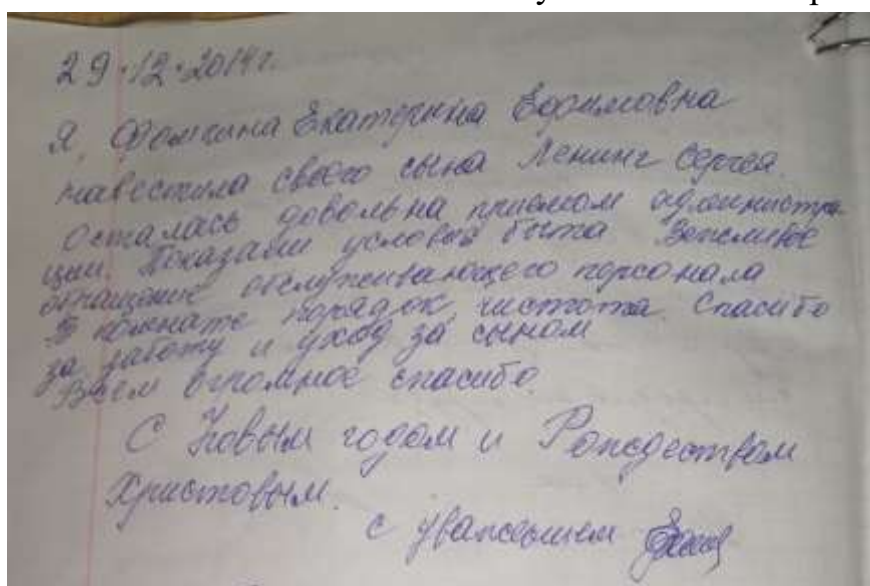 29.12.2014г.
Я, Фомкина Екатерина Ефимовна
навестила своего сына Ленинг Сергея.
Осталась довольна приемом администра-
ции. Показали условия быта Вежливое
обращение обслуживающего персонала
В комнате порядок, чистота. Спасибо
за заботу и уход за сыном
Всем огромное спасибо.
С Новым годом и Рождеством
Христовым.
с уважением